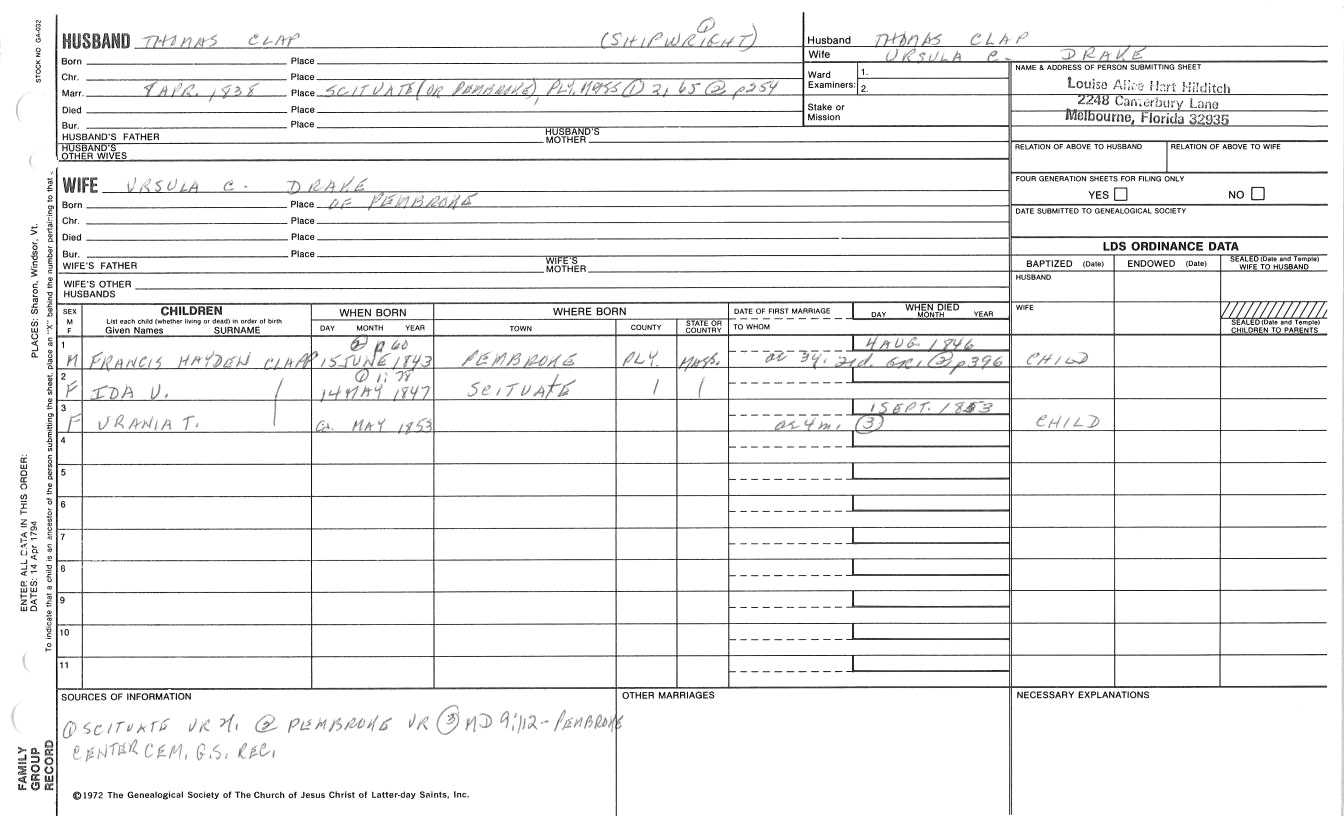 STOCK NO GA-032
HUSBAND THOMAS CLAP (SHIPWRIGHT) ①
Born Place
Chr. Place
Marr. 8 APR. 1838 Place SCITUATE (OR PEMBROKE), PLY, MASS ① 2, 65 ② p 254
Died Place
Bur. Place
HUSBAND'S FATHER HUSBAND'S MOTHER
HUSBAND'S OTHER WIVES
Husband THOMAS CLAP
Wife URSULA C. DRAKE
Ward Examiners: 1.
2.
Stake or Mission
NAME & ADDRESS OF PERSON SUBMITTING SHEET
Louise Alice Hart Hilditch
2248 Canterbury Lane
Melbourne, Florida 32935
RELATION OF ABOVE TO HUSBAND RELATION OF ABOVE TO WIFE
FOUR GENERATION SHEETS FOR FILING ONLY
YES NO
DATE SUBMITTED TO GENEALOGICAL SOCIETY
WIFE URSULA C. DRAKE
Born Place OF PEMBROKE
Chr. Place
Died Place
Bur. Place
WIFE'S FATHER WIFE'S MOTHER
WIFE'S OTHER HUSBANDS
LDS ORDINANCE DATA
BAPTIZED (Date) ENDOWED (Date) SEALED (Date and Temple) WIFE TO HUSBAND
HUSBAND
WIFE
SEALED (Date and Temple) CHILDREN TO PARENTS
SEX M F
CHILDREN
List each child (whether living or dead) in order of birth
Given Names SURNAME
WHEN BORN
DAY MONTH YEAR
WHERE BORN
TOWN COUNTY STATE OR COUNTRY
DATE OF FIRST MARRIAGE
TO WHOM
WHEN DIED
DAY MONTH YEAR
② p 60 4 AUG. 1846
1 M FRANCIS HAYDEN CLAPP 15 JUNE 1843 PEMBROKE PLY. MASS. ae 3y. 2nd. GR. ③ p 396 CHILD
① 1: 78
2 F IDA U. 14 MAY 1847 SCITUATE
1 SEPT. 1853
3 F URANIA T. ca. MAY 1853 ae 4 m. ③ CHILD
4
5
6
7
8
9
10
11
SOURCES OF INFORMATION
① SCITUATE VR ② PEMBROKE VR ③ MD 9:112 - PEMBROKE
CENTER CEM. G.S. REC.
OTHER MARRIAGES
NECESSARY EXPLANATIONS
©1972 The Genealogical Society of The Church of Jesus Christ of Latter-day Saints, Inc.
FAMILY GROUP RECORD
ENTER ALL DATA IN THIS ORDER:
DATES: 14 Apr 1794
PLACES: Sharon, Windsor, Vt.
To indicate that a child is an ancestor of the person submitting the sheet, place an "X" behind the number pertaining to that